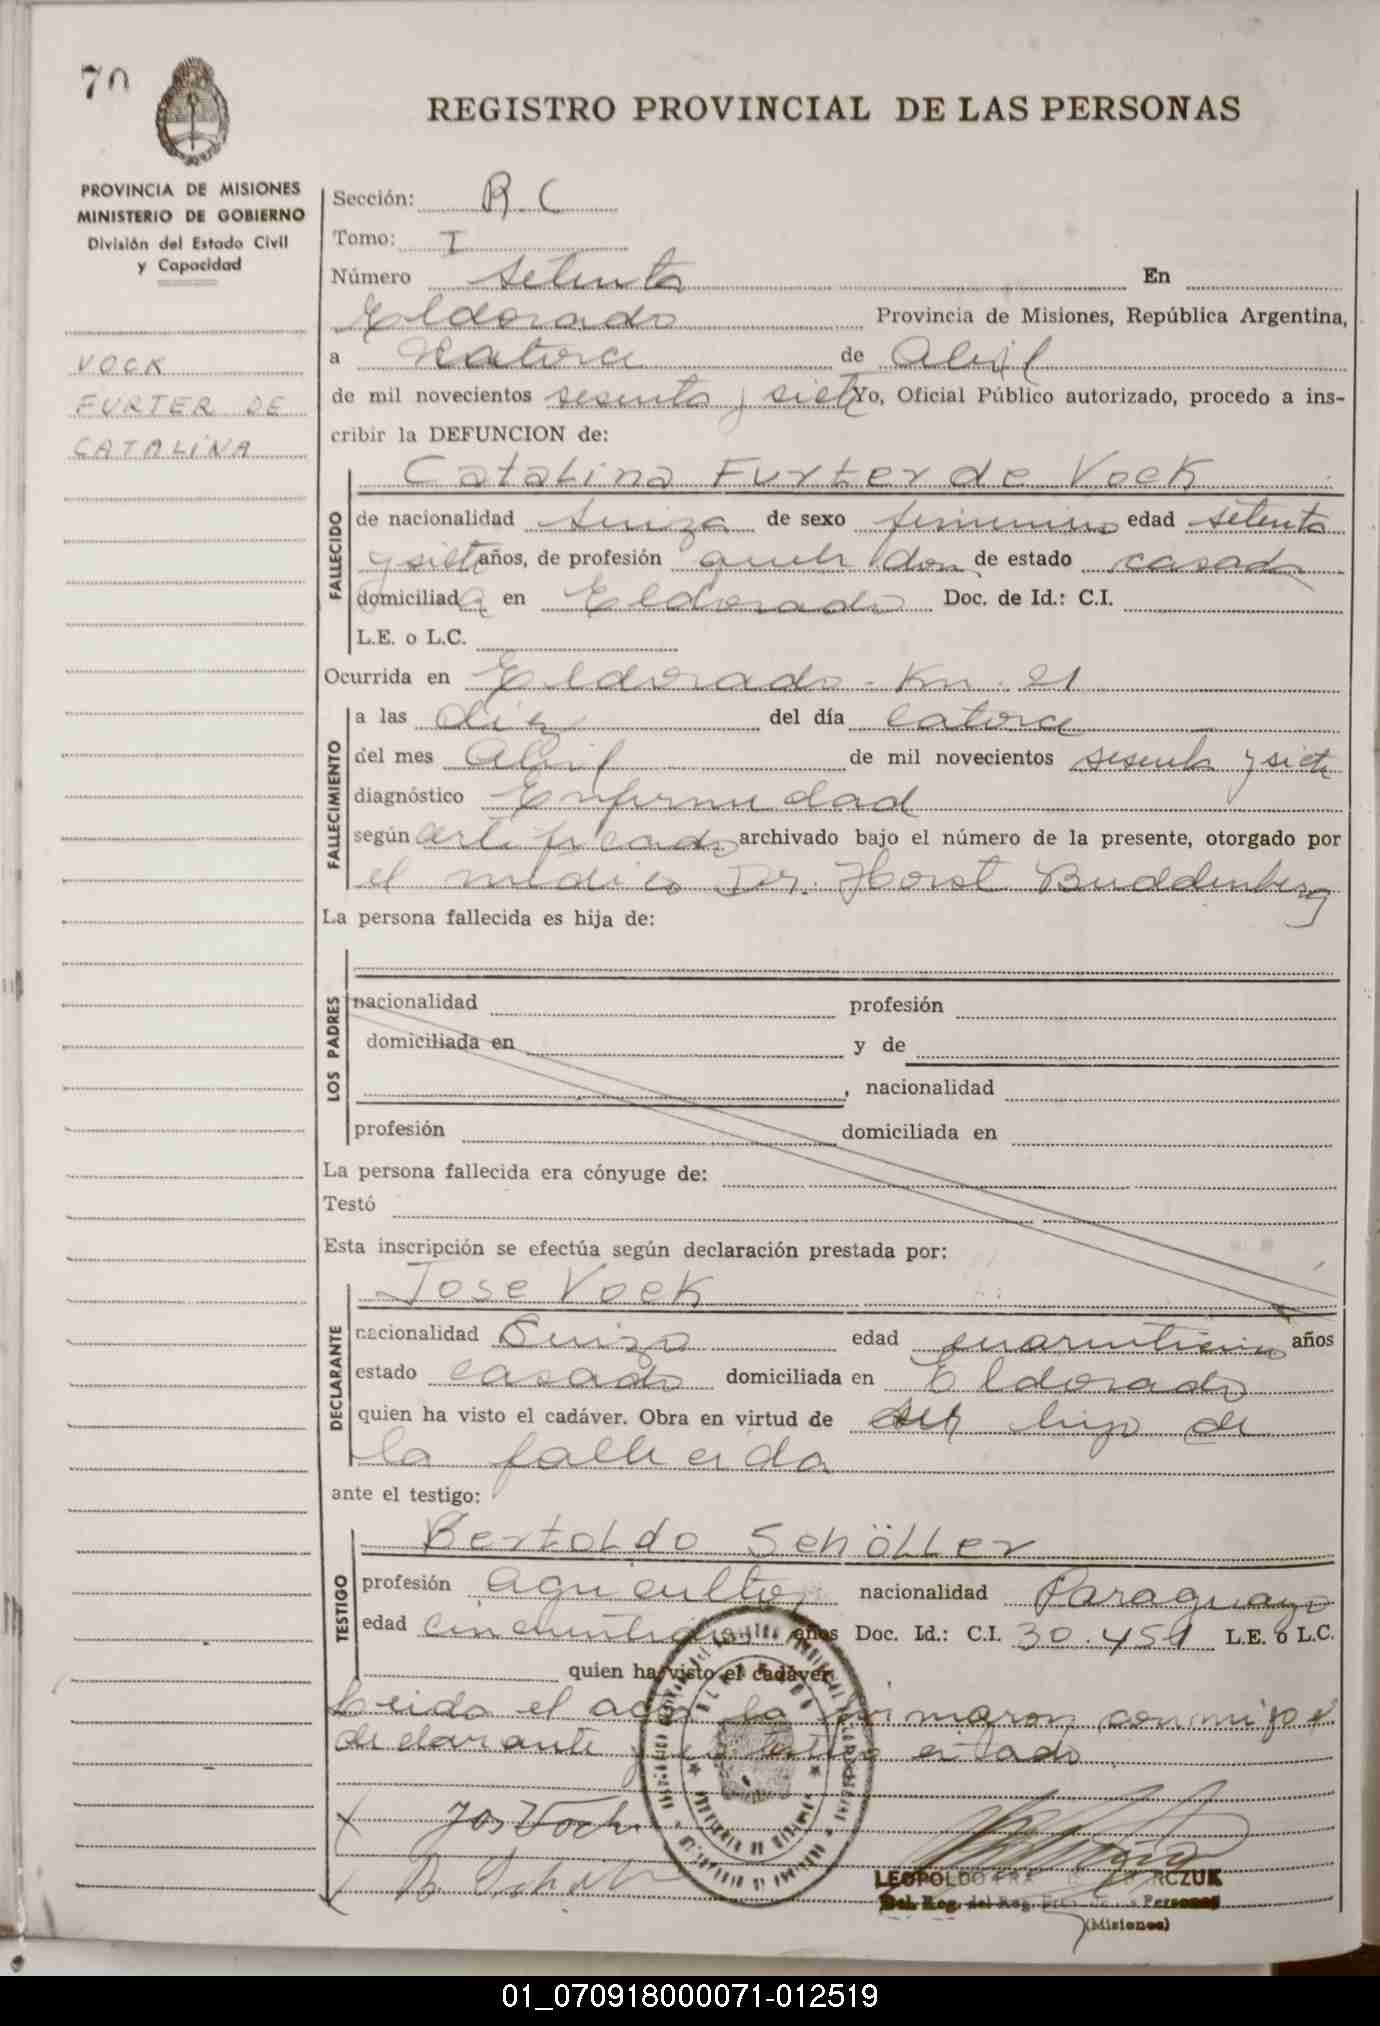 70
REGISTRO PROVINCIAL DE LAS PERSONAS
PROVINCIA DE MISIONES
MINISTERIO DE GOBIERNO
División del Estado Civil
y Capacidad
VOCK
FURTER DE
CATALINA
Sección: R. C
Tomo: I
Número setenta En
Eldorado Provincia de Misiones, República Argentina,
a Catorce de Abril
de mil novecientos sesenta y siete Yo, Oficial Público autorizado, procedo a ins-
cribir la DEFUNCION de:
Catalina Furter de Vock
FALLECIDO
de nacionalidad suiza de sexo femenino edad setenta
y siete años, de profesión de estado casada
domiciliada en Eldorado Doc. de Id.: C.I.
L.E. o L.C.
Ocurrida en Eldorado - Km. 21
FALLECIMIENTO
a las diez del día catorce
del mes Abril de mil novecientos sesenta y siete
diagnóstico Enfermedad
según certificado archivado bajo el número de la presente, otorgado por
el médico Dr. Horst Buddenberg
La persona fallecida es hija de:
LOS PADRES
nacionalidad profesión
domiciliada en y de
, nacionalidad
profesión domiciliada en
La persona fallecida era cónyuge de:
Testó
Esta inscripción se efectúa según declaración prestada por:
Jose Vock
DECLARANTE
nacionalidad Suizo edad años
estado casado domiciliada en Eldorado
quien ha visto el cadáver. Obra en virtud de ser hijo de
la fallecida
ante el testigo:
Bertoldo Schöller
TESTIGO
profesión agricultor nacionalidad Paraguayo
edad años Doc. Id.: C.I. 30.451 L.E. o L.C.
quien ha visto el cadáver
Leida el acta la firmaron conmigo el
declarante y el testigo citado
Jos Vock
B. Schöller
LEOPOLDO RCZUK
Del. Reg. del Reg. Prov. de las Personas
(Misiones)
01_070918000071-012519